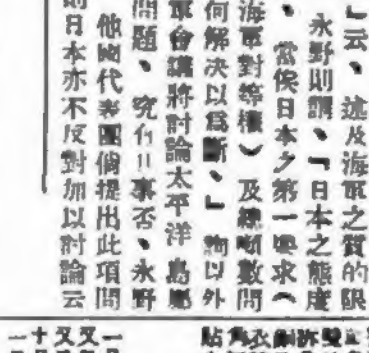 」云、述及海軍之質的限
永野則謂、「日本之態度
、當俟日本之第一要求（
海軍對等權）及總噸數問
何解決以爲斷、」詢以外
軍會議將討論太平洋島嶼
問題、究有此事否、永野
他國代表團倘提出此項問
日本亦不反對加以討論云